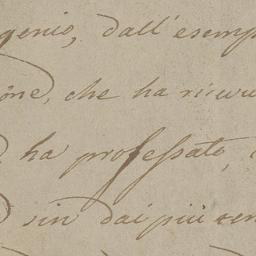 genio, dall'esemp
one, che ha ricevu
ha professato,
sin dai più ten